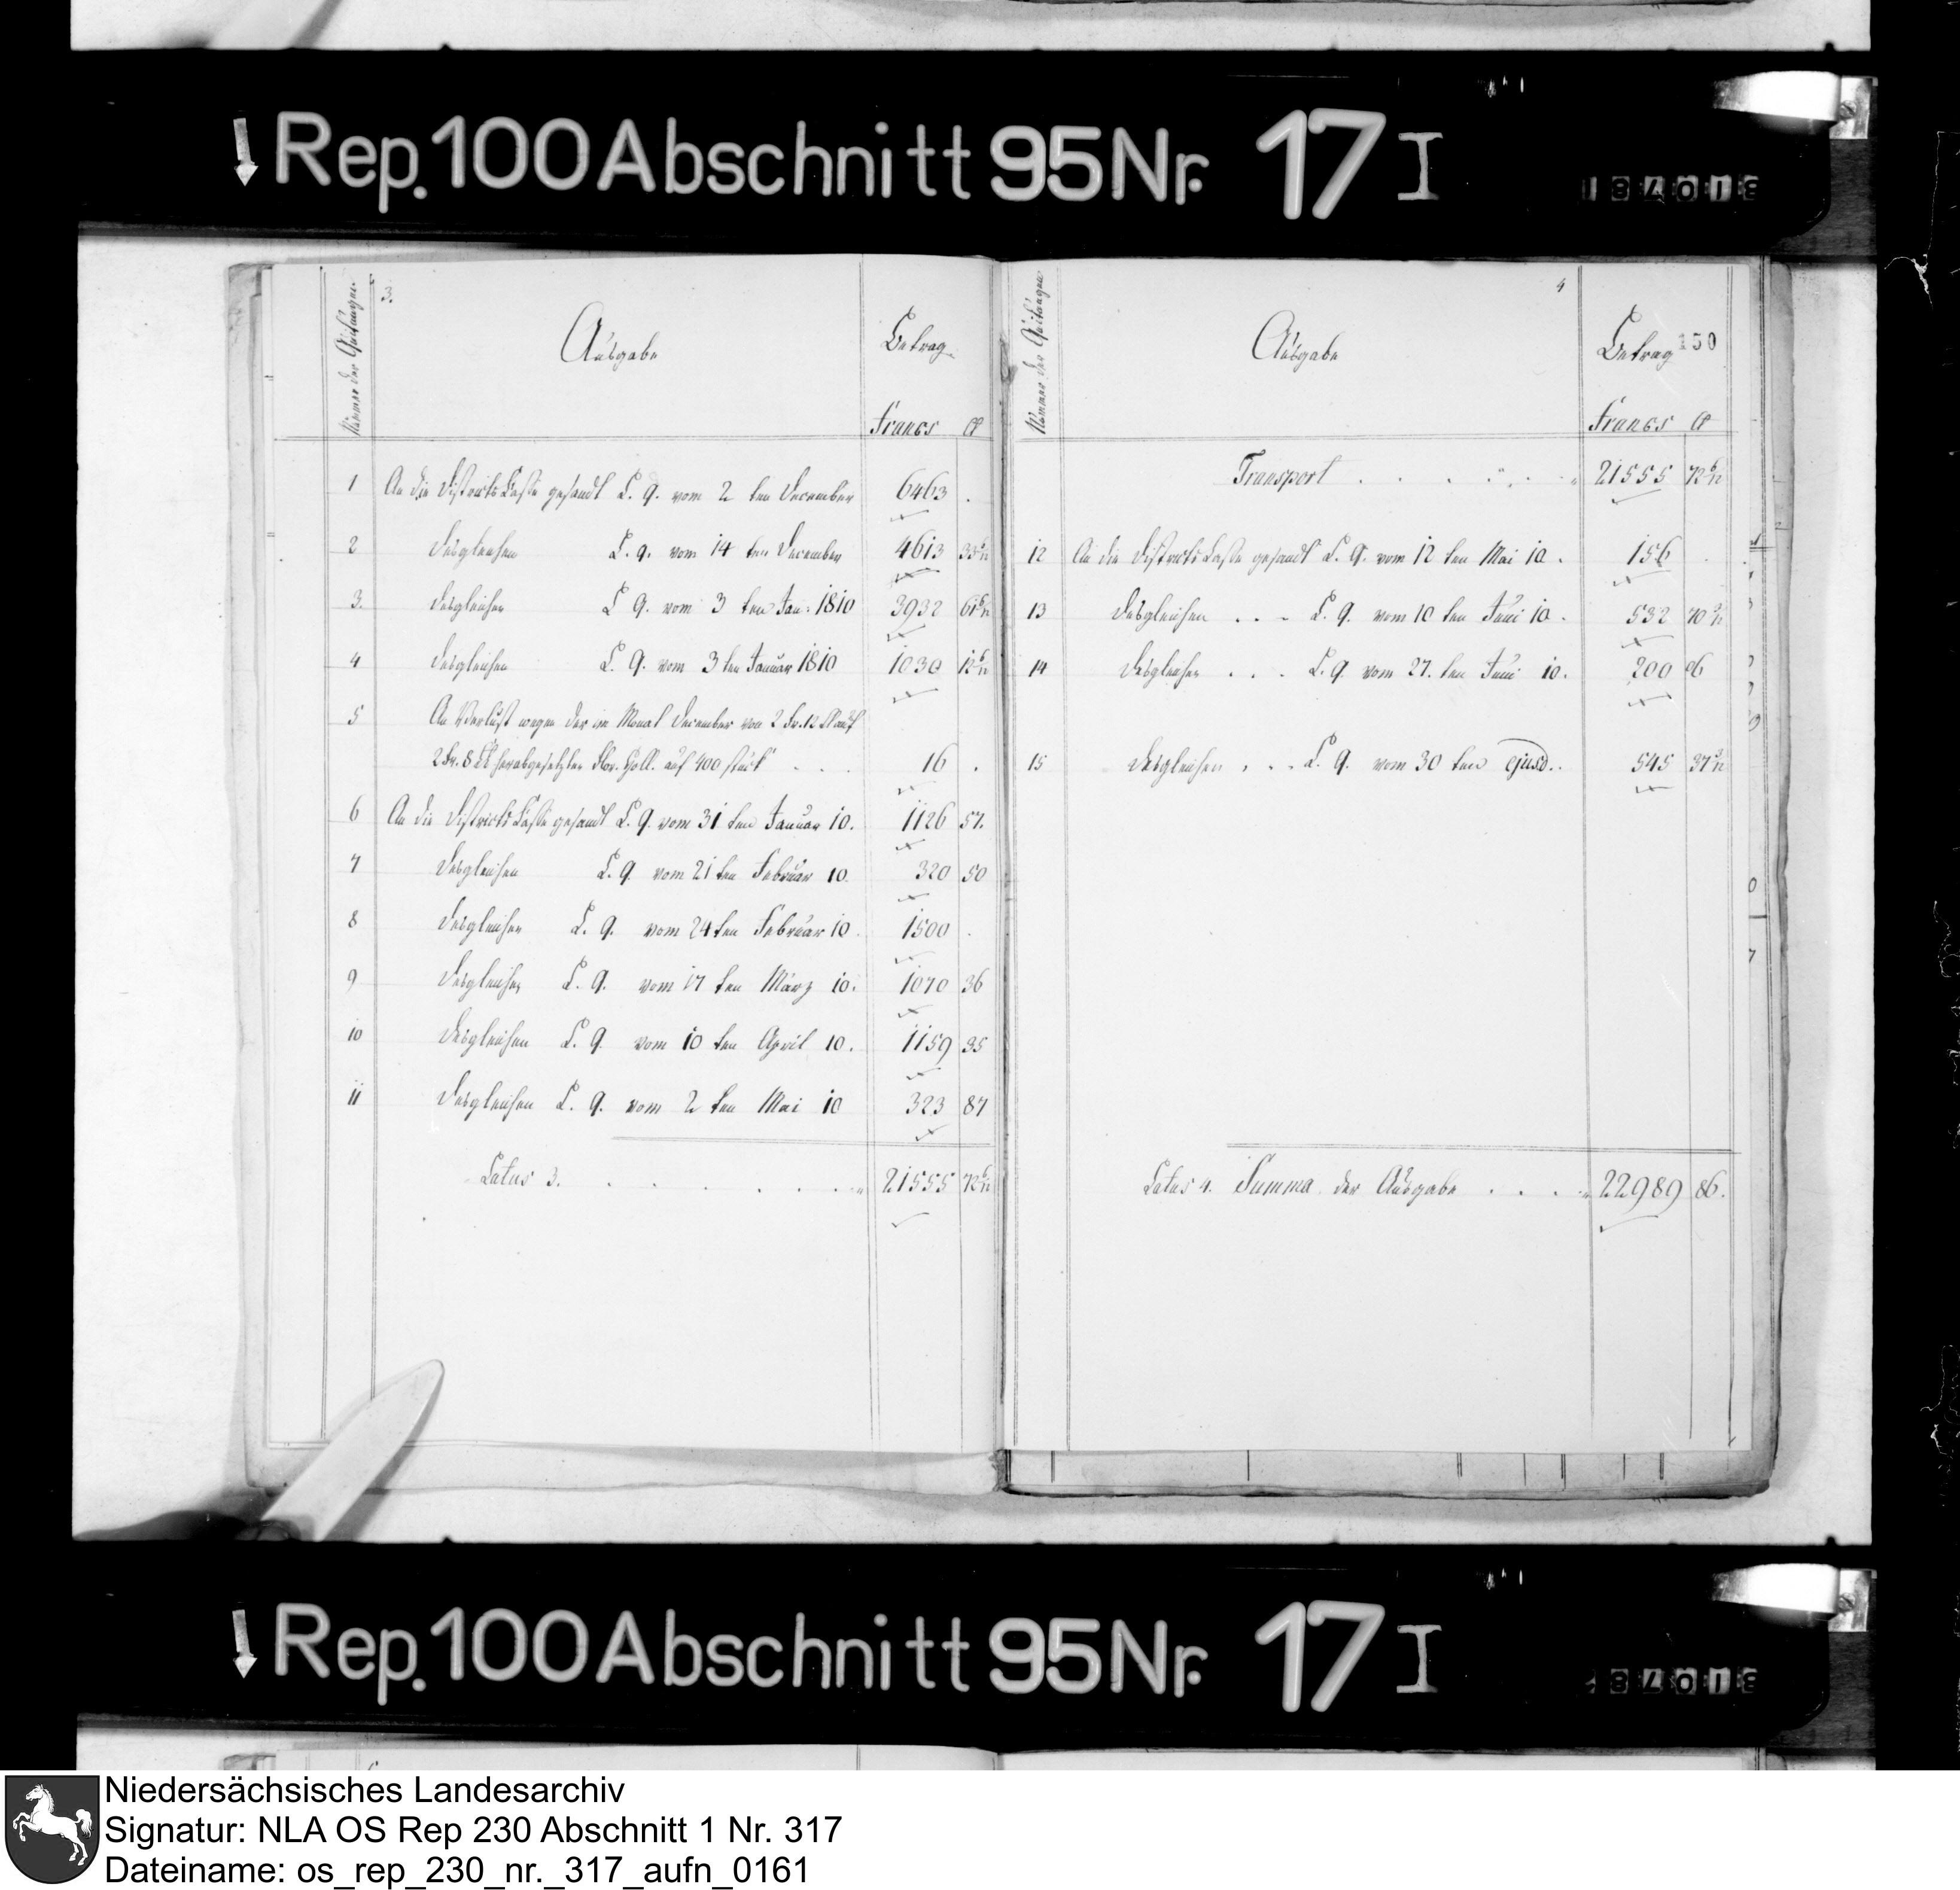 Rep. 100 Abschnitt 95 Nr. 17 I
3.
Nummer der Quitungen
Ausgabe
Betrag
Francs Ct
1 An die Districts Casse gesandt L. q. vom 2 ten December 6463 .
2 desgleichen L. q. vom 14 ten December 4613
3. desgleichen L. q. vom 3 ten Jan. 1810 3932
4 desgleichen L. q. vom 3 ten Januar 1810 1030
5 An Verlust wegen der im Monat December von 2 Fr. 12 Ct auf
2 Fr. 8 Ct herabgesetzten Flor. Holl. auf 400 stück . . . 16 .
6 An die Districts Casse gesandt L. q. vom 31 ten Januar 10. 1126 57.
7 desgleichen L. q. vom 21 ten Februar 10. 320 50
8 desgleichen L. q. vom 24 ten Februar 10. 1500 .
9 desgleichen L. q. vom 17 ten März 10. 1070 36
10 desgleichen L. q. vom 10 ten April 10. 1159 35
11 desgleichen L. q. vom 2 ten Mai 10 323 87
Latus 3. . . . . . . 21555
4
150
Nummer der Quitungen
Ausgabe
Betrag
Francs Ct
Transport . . . . . . 21555
12 An die Districts Casse gesandt L. q. vom 12 ten Mai 10. 156 .
13 desgleichen . . . L. q. vom 10 ten Juni 10. 532
14 desgleichen . . . L. q. vom 27. ten Juni 10. 200 06
15 desgleichen . . . L. q. vom 30 ten ejusd. . 545
Latus 4. Summa der Ausgabe . . . . 22989 86.
Rep. 100 Abschnitt 95 Nr. 17 I
Niedersächsisches Landesarchiv
Signatur: NLA OS Rep 230 Abschnitt 1 Nr. 317
Dateiname: os_rep_230_nr._317_aufn_0161